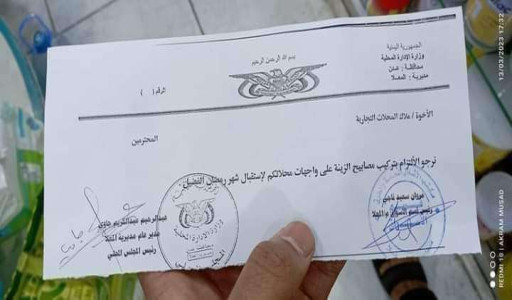 بسم الله الرحمن الرحيم
الجمهورية اليمنية
وزارة الإدارة المحلية
محافظة : عدن
مديرية : المعلا
الرقم ( )
الأخوة / ملاك المحلات التجارية
المحترمين
نرجو الألتزام بتركيب مصابيح الزينة على واجهات محلاتكم لإستقبال شهر رمضان الفضيل
مروان سعيد ناجي
عبدالرحيم عبدالكريم جاوي
مدير عام مديرية المعلا
رئيس المجلس المحلي
13/03/2023 17:32
REDMI 10 | AKRAM MUSAD